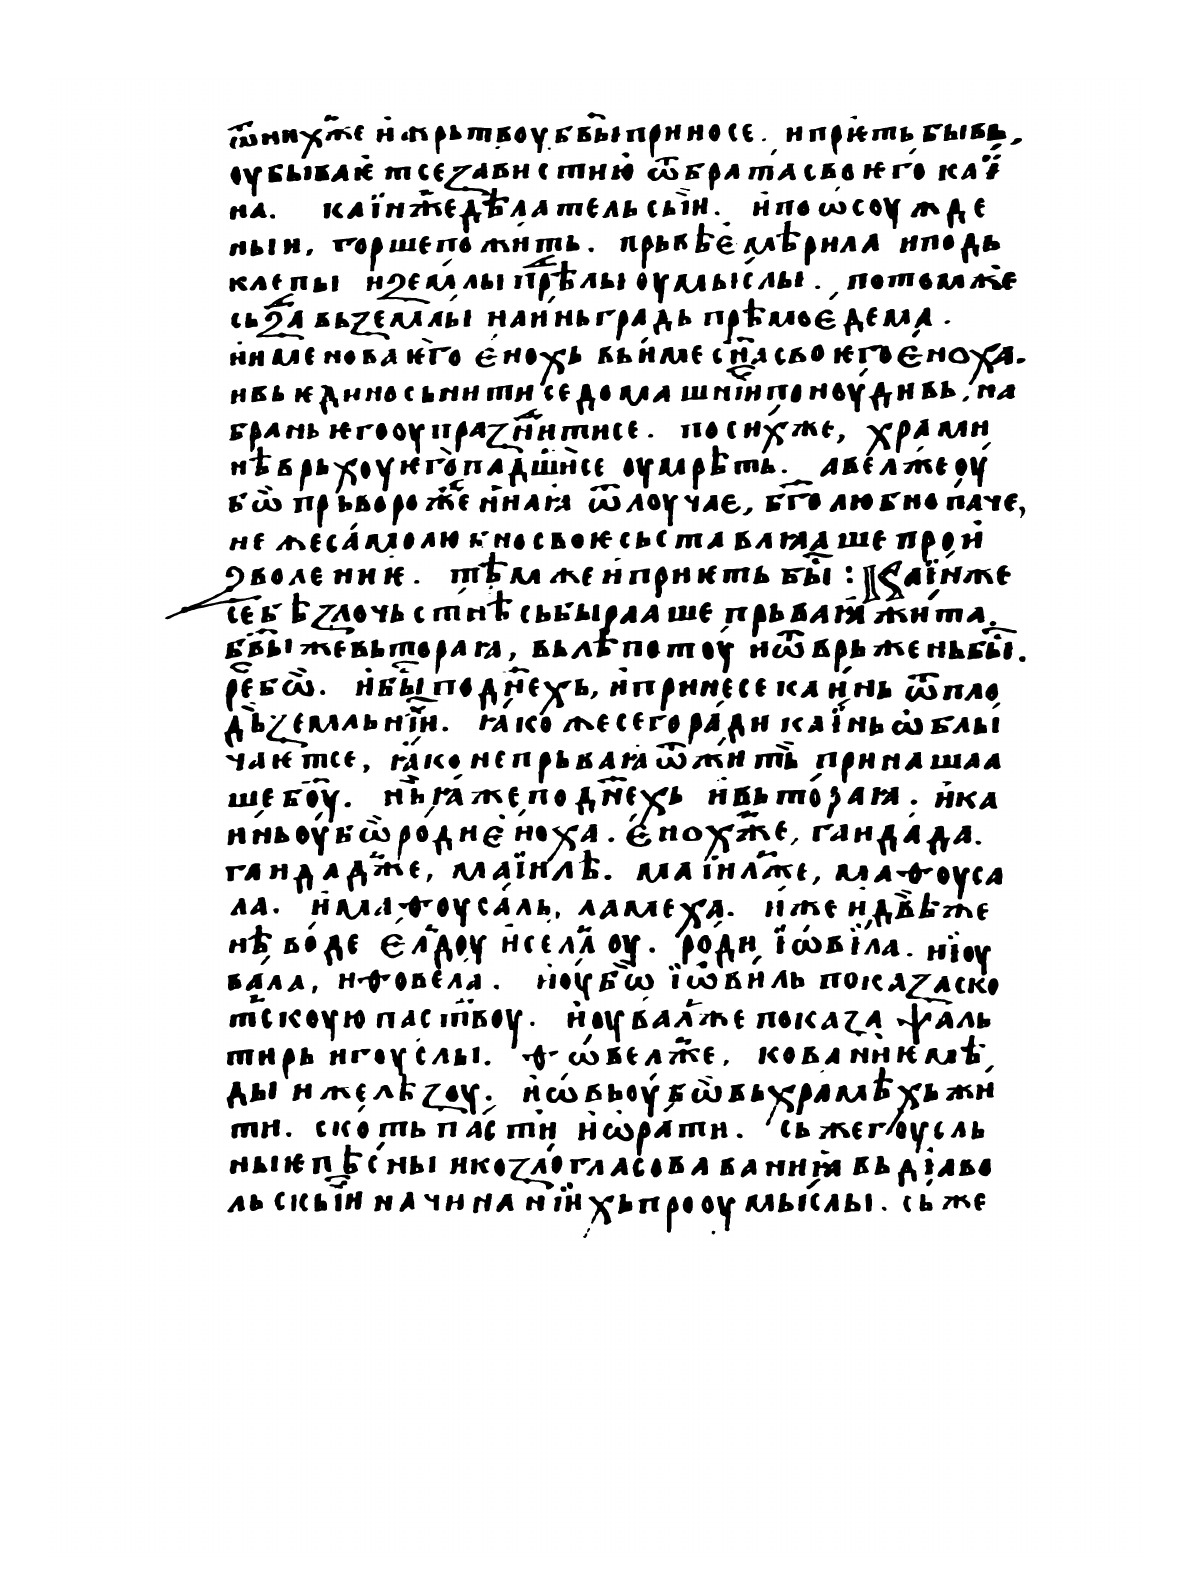 ѿнихже и жрьтвоу бв҃ы принoсе. и прїѥть бывь,
оубываѥтсе завистию ѿ брата своѥго каї
на. каїнже дѣлатель сыи. и по ѡсоужде
ныи, горше пожить. прьвѣе мѣрила и подь
клепы и землы прѣлы оумыслы. потомже
сьзда вь землы наинь градь прѣмо едема.
именова ѥго енохь вь име сн҃а своѥго еноха.
и вь ѥдино сьнитисе домашнїим поноудивь, на
брань ѥго оупразнитисе. по сихже, храми
нѣ врьхоу ѥго падшисе оумрѣть. авелже оу
бѡ прьворожеⷩ҇наꙗ ѿлоучае, бг҃олюбно паче,
неже самолюбно своѥ сьставлꙗаше прои
зволениѥ. тѣмже и приѥть бы҃ : Каїнже
себѣ злочьстнѣ сьбыраше прьваꙗ жита.
бв҃ы же вьтораꙗ, вь лѣпотоу и ѿврьжень бы҃.
реⷱ҇ бѡ. и бы҃ по днехь, и принесе каинь ѿ пло
дь земльнїи. ꙗкоже сего ради каїнь ѡблы
чаѥтсе, ꙗко не прьваꙗ ѿ жить принашаа
ше боу҃. нь ꙗже по днехь и вьтораꙗ. и ка
инь оубѡ родн еноха. енохже, гандада.
гандадже, маїилѣ. маїилже, маѳоуса
ла. и маѳоусаль, ламеха. иже и двѣ же
нѣ воде елдоу и селл оу. роди їѡвїла. и їоу
вала, и ѳовела. и оубѡ їѡвиль показа ско
тскоую паствоу. и оувалже показа ѱаль
тирь и гоуслы. ѳѡвелже, кованиѥ мѣ
ды и желѣзоу. и ѡвь оубѡ вь храмѣхь жи
ти. скоть пасти и ѡрати. сь же гоусль
ныѥ пѣсны и козлогласовавaниꙗ вь дїаво
льскыїи начинанїихь проoумыслы. сь же